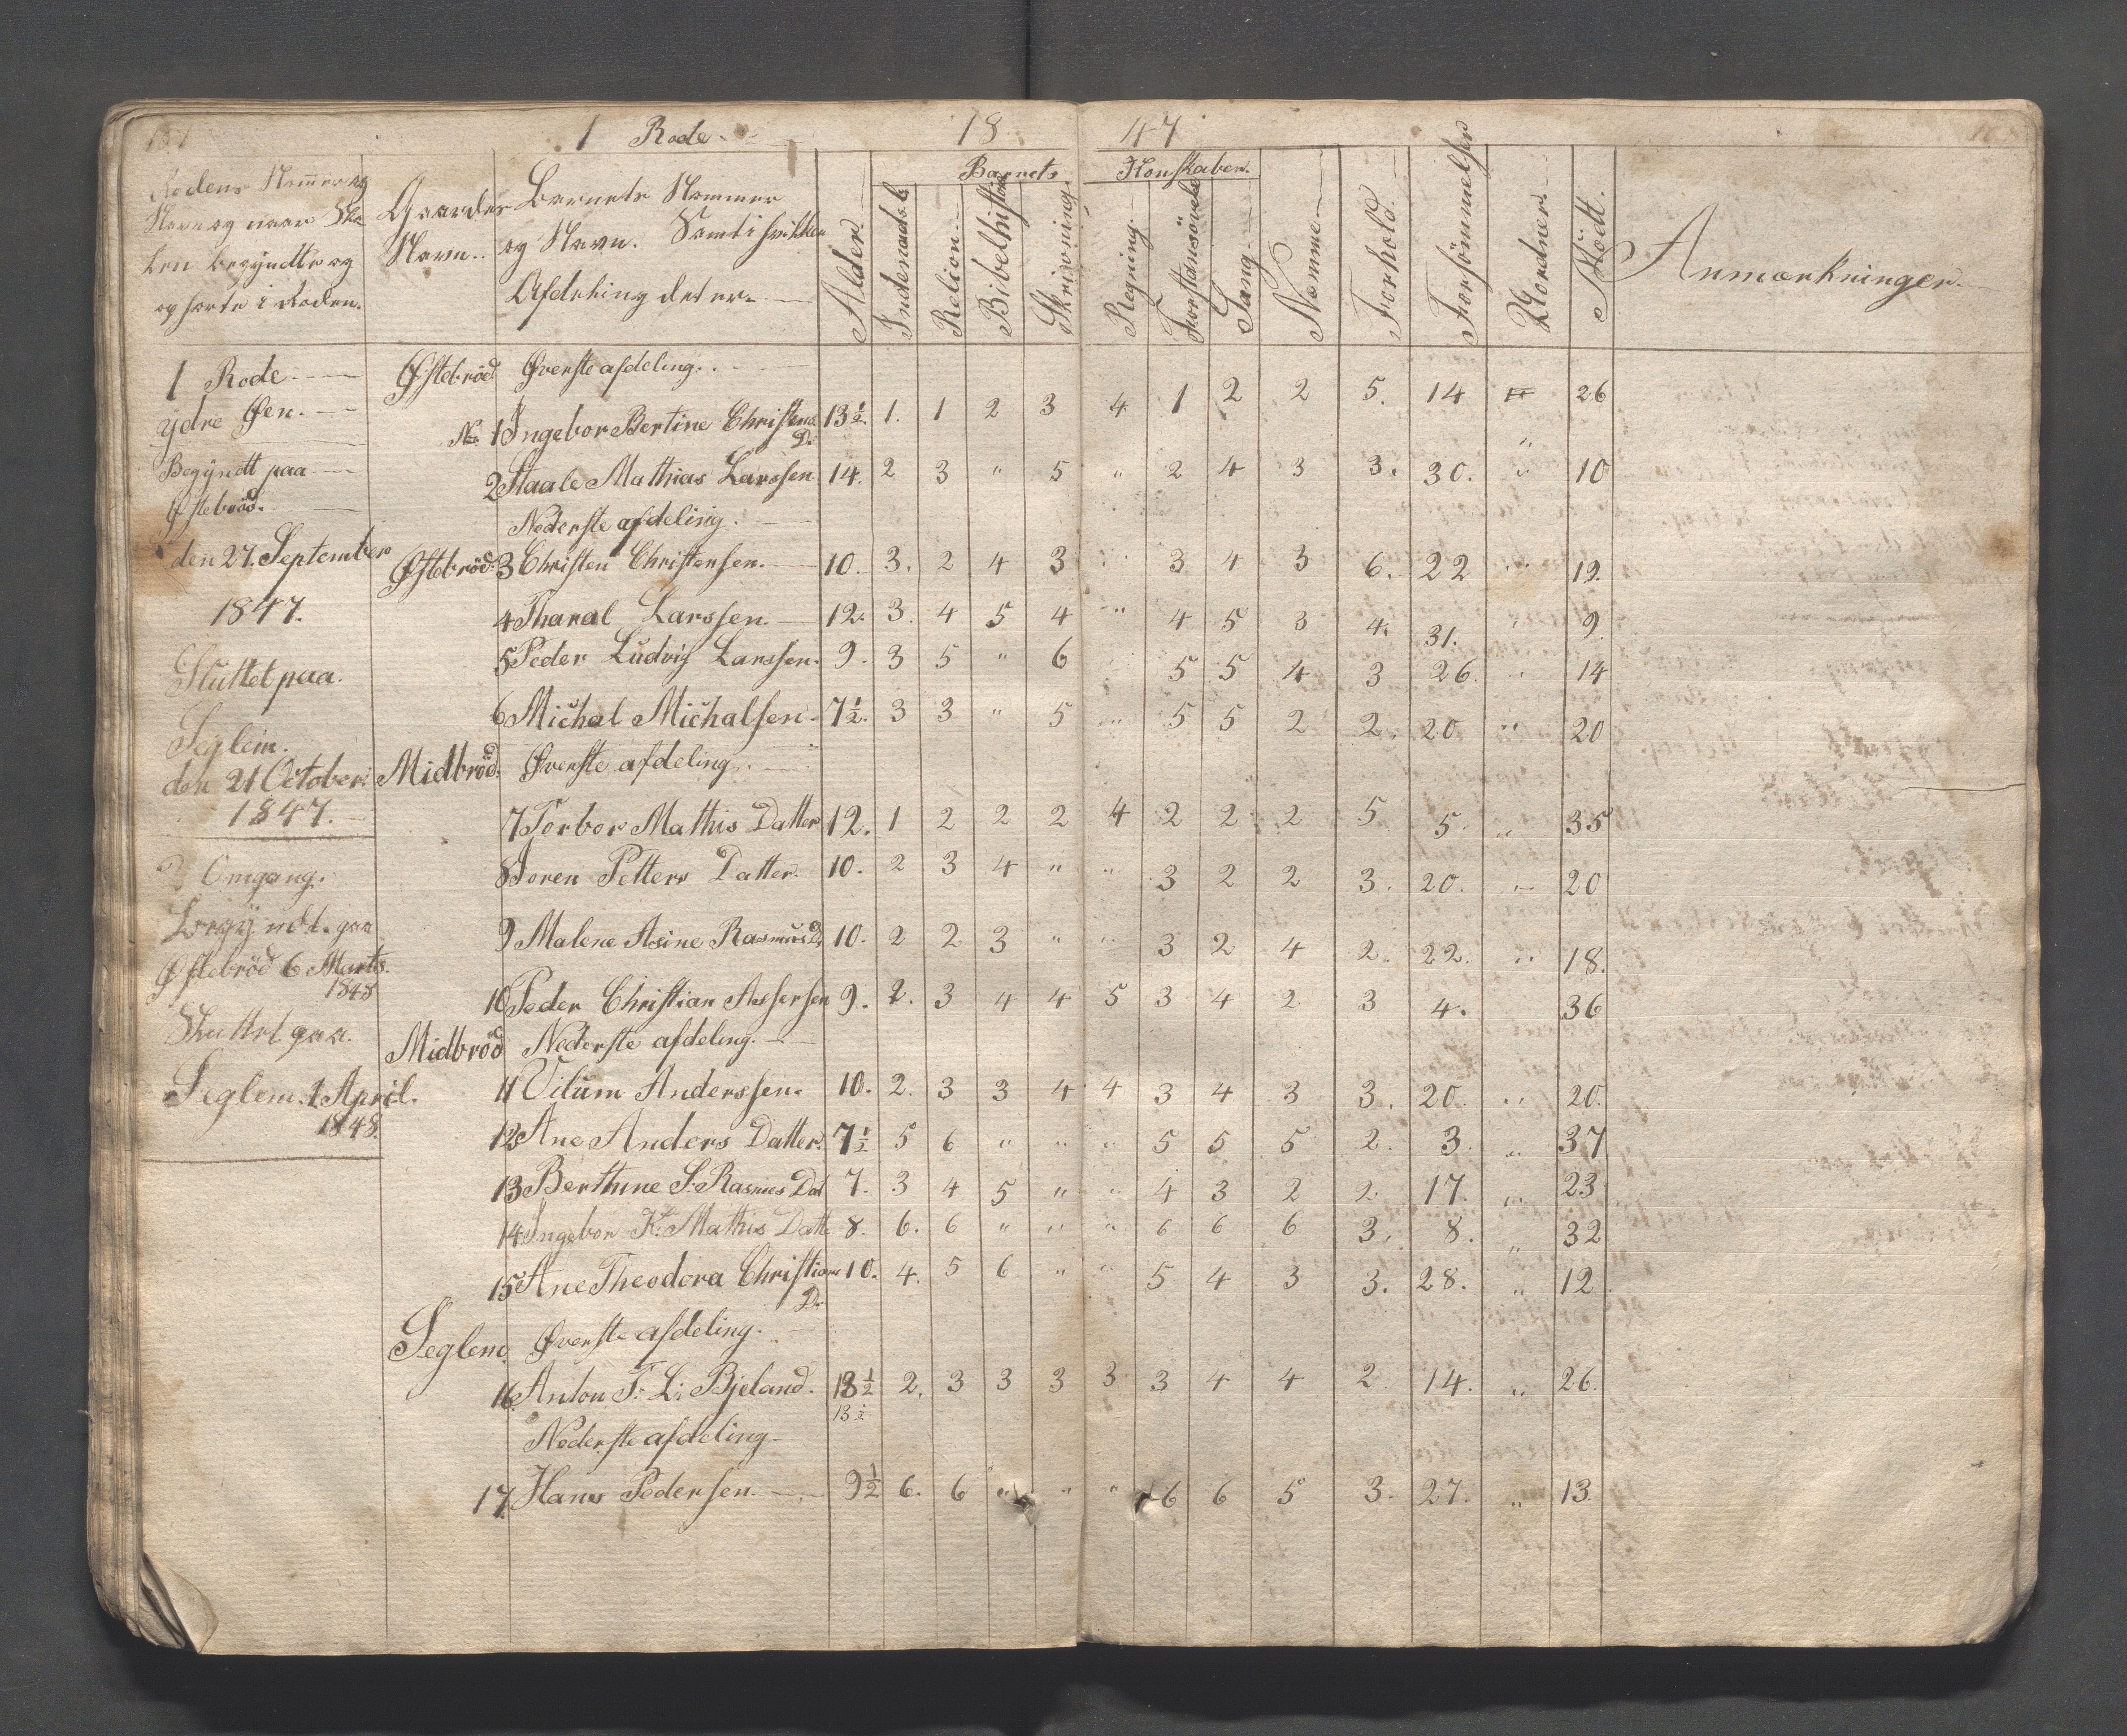 1 Rode 18 47
Rodens Nommer og
Navn og naar Sko
len begyndte og
ophørte i Roden.
Gaardes
Navn.
Barnets Nommer
og Navn. Samt i hvilken
Afdehing det er.
Alder.
Barnets Konskaber.
Indenadsl.
Relion.
Bibelhistor
Skrivning.
Regning.
Forstandsövels
Sang.
Nemme.
Forhold.
Forsömmelser
Mödt.
Anmærkninger.
1 Rode.
ydre Øen.
Begyndt paa
Østebröd.
den 27. September
1847.
Sluttet paa.
Seglem.
den 21 October.
1847.
2 Omgang.
Begyndt paa
Østebröd 6 Marts.
1848
Sluttet paa.
Seglem. 1 April.
1848.
Østebröd Øverste afdeling.
No 1 Ingebor Bertine Christens D. 13½. 1. 1 2 3 4 1 2 2 5. 14 " 26
2 Staale Mathias Larssen 14. 2 3 " 5 " 2 4 3 3. 30. " 10
Nederste afdeling.
Østebröd. 3 Christen Christensen. 10. 3. 2 4 3 " 3 4 3 6. 22 " 19.
4 Tharal Larssen. 12. 3. 4 5 4 " 4 5 3 4. 31. " 9
5 Peder Ludvig Larssen. 9. 3 5 " 6 5 5 4 3 26. " 14
6 Michal Michalsen 7½. 3 3 " 5 " 5 5 2 2. 20 " 20
Midbröd. Øverste afdeling.
7 Torbor Mathis Datter 12. 1 2 2 2 4 2 2 2 5 5. " 35
8 Joren Petters Datter. 10. 2 3 4 " " 3 2 2 3. 20. " 20
9 Malene Asine Rasmus D. 10. 2 2 3 " " 3 2 4 2. 22. " 18.
10 Peder Christian Assersen 9. 2. 3 4 4 5 3 4 2 3 4. 36
Midbröd Nederste afdeling.
11 Vilum Anderssen. 10. 2. 3 3 4 4 3 4 3 3. 20. " 20.
12 Ane Anders Datter. 7½ 5 6 " " " 5 5 5 2. 3. " 37
13 Berthine S. Rasmus Dat 7. 3 4 5 " " 4 3 2 2 17. " 23
14 Ingebor K. Mathis Datt 8. 6. 6 " " " 6 6 6 3. 8. " 32
15 Ane Theodora Christians D. 10. 4. 5 6 " " 5 4 3 3. 28. " 12
Seglem. Øverste afdeling.
16 Anton T. L. Bjeland. 18½ 2. 3 3 3 3 3 4 4 2. 14. " 26.
13½
Nederste afdeling
17 Hans Pedersen. 9½ 6. 6 " " " 6 6 5 3. 27. " 13.